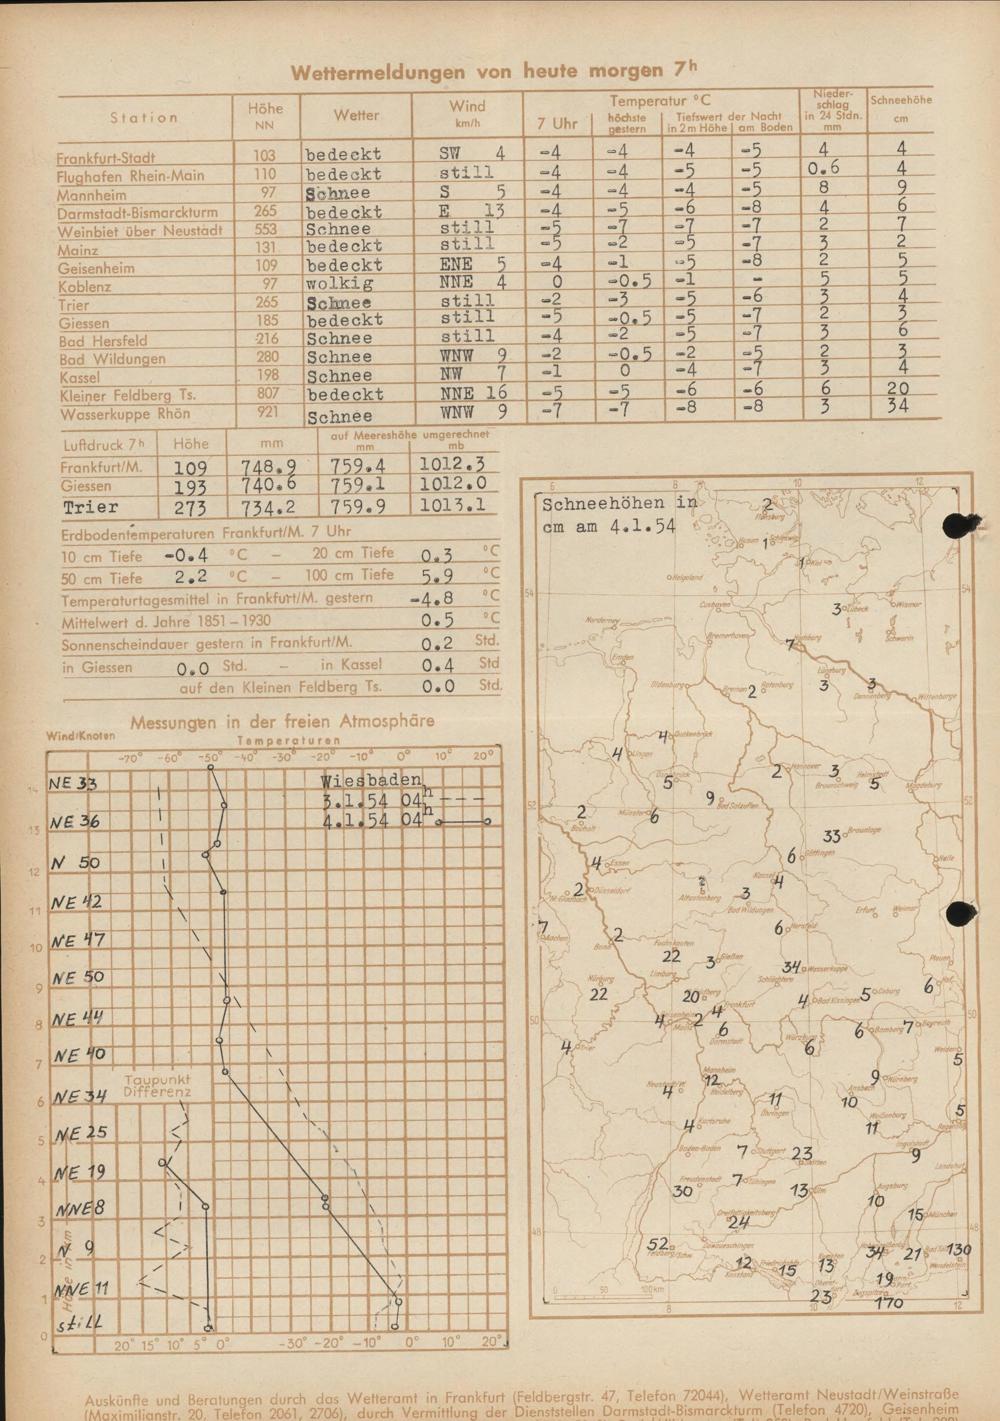 Wettermeldungen von heute morgen 7h
Station Höhe NN Wetter Wind km/h Temperatur °C Nieder-schlag in 24 Stdn. mm Schneehöhe cm
7 Uhr höchste gestern Tiefswert der Nacht in 2 m Höhe am Boden
Frankfurt-Stadt 103 bedeckt SW 4 -4 -4 -4 -5 4 4
Flughafen Rhein-Main 110 bedeckt still -4 -4 -5 -5 0.6 4
Mannheim 97 Schnee S 5 -4 -4 -4 -5 8 9
Darmstadt-Bismarckturm 265 bedeckt E 13 -4 -5 -6 -8 4 6
Weinbiet über Neustadt 553 Schnee still -5 -7 -7 -7 2 7
Mainz 131 bedeckt still -5 -2 -5 -7 3 2
Geisenheim 109 bedeckt ENE 5 -4 -1 -5 -8 2 5
Koblenz 97 wolkig NNE 4 0 -0.5 -1 - 5 5
Trier 265 Schnee still -2 -3 -5 -6 3 4
Giessen 185 bedeckt still -5 -0.5 -5 -7 2 3
Bad Hersfeld 216 Schnee still -4 -2 -5 -7 3 6
Bad Wildungen 280 Schnee WNW 9 -2 -0.5 -2 -5 2 3
Kassel 198 Schnee NW 7 -1 0 -4 -7 3 4
Kleiner Feldberg Ts. 807 bedeckt NNE 16 -5 -5 -6 -6 6 20
Wasserkuppe Rhön 921 Schnee WNW 9 -7 -7 -8 -8 3 34
Luftdruck 7h Höhe mm auf Meereshöhe umgerechnet mm mb
Frankfurt/M. 109 748.9 759.4 1012.3
Giessen 193 740.6 759.1 1012.0
Trier 273 734.2 759.9 1013.1
Erdbodentemperaturen Frankfurt/M. 7 Uhr
10 cm Tiefe -0.4 °C - 20 cm Tiefe 0.3 °C
50 cm Tiefe 2.2 °C - 100 cm Tiefe 5.9 °C
Temperaturtagesmittel in Frankfurt/M. gestern -4.8 °C
Mittelwert d. Jahre 1851-1930 0.5 °C
Sonnenscheindauer gestern in Frankfurt/M. 0.2 Std.
in Giessen 0.0 Std. - in Kassel 0.4 Std
auf den Kleinen Feldberg Ts. 0.0 Std.
Messungen in der freien Atmosphäre
Wind/Knoten Temperaturen
-70° -60° -50° -40° -30° -20° -10° 0° 10° 20°
Wiesbaden
3.1.54 04h
4.1.54 04h
NE 33
14
NE 36
13
N 50
12
NE 42
11
NE 47
10
NE 50
9
NE 44
8
NE 40
7
NE 34
6
Taupunkt
Differenz
NE 25
5
NE 19
4
NNE 8
3
N 9
2
NNE 11
1
still
0
Höhe in km
20° 15° 10° 5° 0° -30° -20° -10° 0° 10° 20°
Schneehöhen in
cm am 4.1.54
6 8 10 12
2 Flensburg
Husum 1 Schleswig
1 Kiel
Helgoland
54
Cuxhaven 3 Lübeck Wismar
Norderney
Schwerin
Bremerhaven 7 Hamburg
Emden
Lüneburg
Oldenburg Bremen 2 Rotenburg 3 3 Dannenberg Wittenberge
4 Quakenbrück
4 Lingen
5 Osnabrück 2 Hannover 3 Braunschweig Helmstedt 5 Magdeburg
9 Bad Salzuflen
52
2 Bocholt Münster 6
33 Braunlage
6 Göttingen Halle
4 Essen
Kassel 4
2 Düsseldorf
M. Gladbach
2 Altastenberg 3 Bad Wildungen
Erfurt Weimar
7 Aachen
Bonn 2
6 Hersfeld
Fuchskauten 22
3 Gießen
Plauen
34 Wasserkuppe
Limburg Schlüchtern
Nürburg 22
20 Feldberg
4 Frankfurt
4 Bad Kissingen 5 Coburg 6 Hof
50
4 Geisenheim Mainz 2
6 Darmstadt
Würzburg 6
6 Bamberg 7 Bayreuth
4 Trier
Weiden 5
Mannheim 12 Heidelberg
Neustadt/W 4
9 Nürnberg
Ansbach 10
11 Öhringen
Weißenburg 11
5 Regensburg
4 Karlsruhe
Ingolstadt 9
Baden-Baden 7 Stuttgart 23
Landshut
Freudenstadt 30
7 Tübingen
13 Ulm
Augsburg 10
15 München
24
48
52 Feldberg/Schw.
Donaueschingen
12 Konstanz
15
13
34
21
130 Wendelstein
19
23
Zugspitze 170
0 50 100 km
8 10 12
Auskünfte und Beratungen durch das Wetteramt in Frankfurt (Feldbergstr. 47, Telefon 72044), Wetteramt Neustadt/Weinstraße
(Maximilianstr. 20, Telefon 2061, 2706), durch Vermittlung der Dienststellen Darmstadt-Bismarckturm (Telefon 4720), Geisenheim